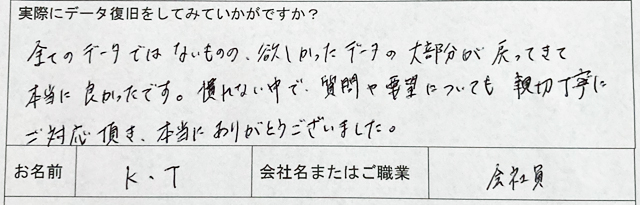 実際にデータ復旧をしてみていかがですか？
全てのデータではないものの、欲しかったデータの大部分が戻ってきて
本当に良かったです。慣れない中で、質問や要望についても親切丁寧に
ご対応頂き、本当にありがとうございました。
お名前 K・T 会社名またはご職業 会社員